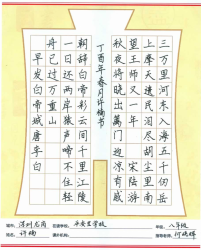 三万里河东入海五千仞岳
上摩天遗民泪尽胡尘里南
望王师又一年 宋陆游
秋夜将晓出篱门迎凉有感
丁酉年春月许楠书
朝辞白帝彩云间千里江陵
一日还两岸猿声啼不住轻
舟已过万重山
早发白帝城唐李白
深圳龙岗 在读学校: 平安里学校 八年级
姓名: 许楠 指导老师: